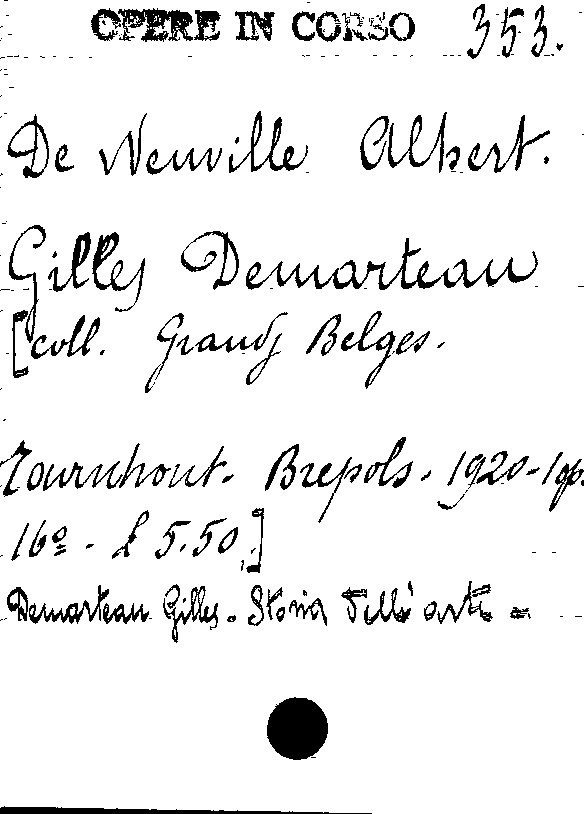 OPERE IN CORSO 353.
De Neuville Albert.
Gilles Demarteau
[coll. Grands Belges.
Tournhout. Brepols. 1920-
16º - £ 5.50.]
Demarteau Gilles. Storia dell'arte =